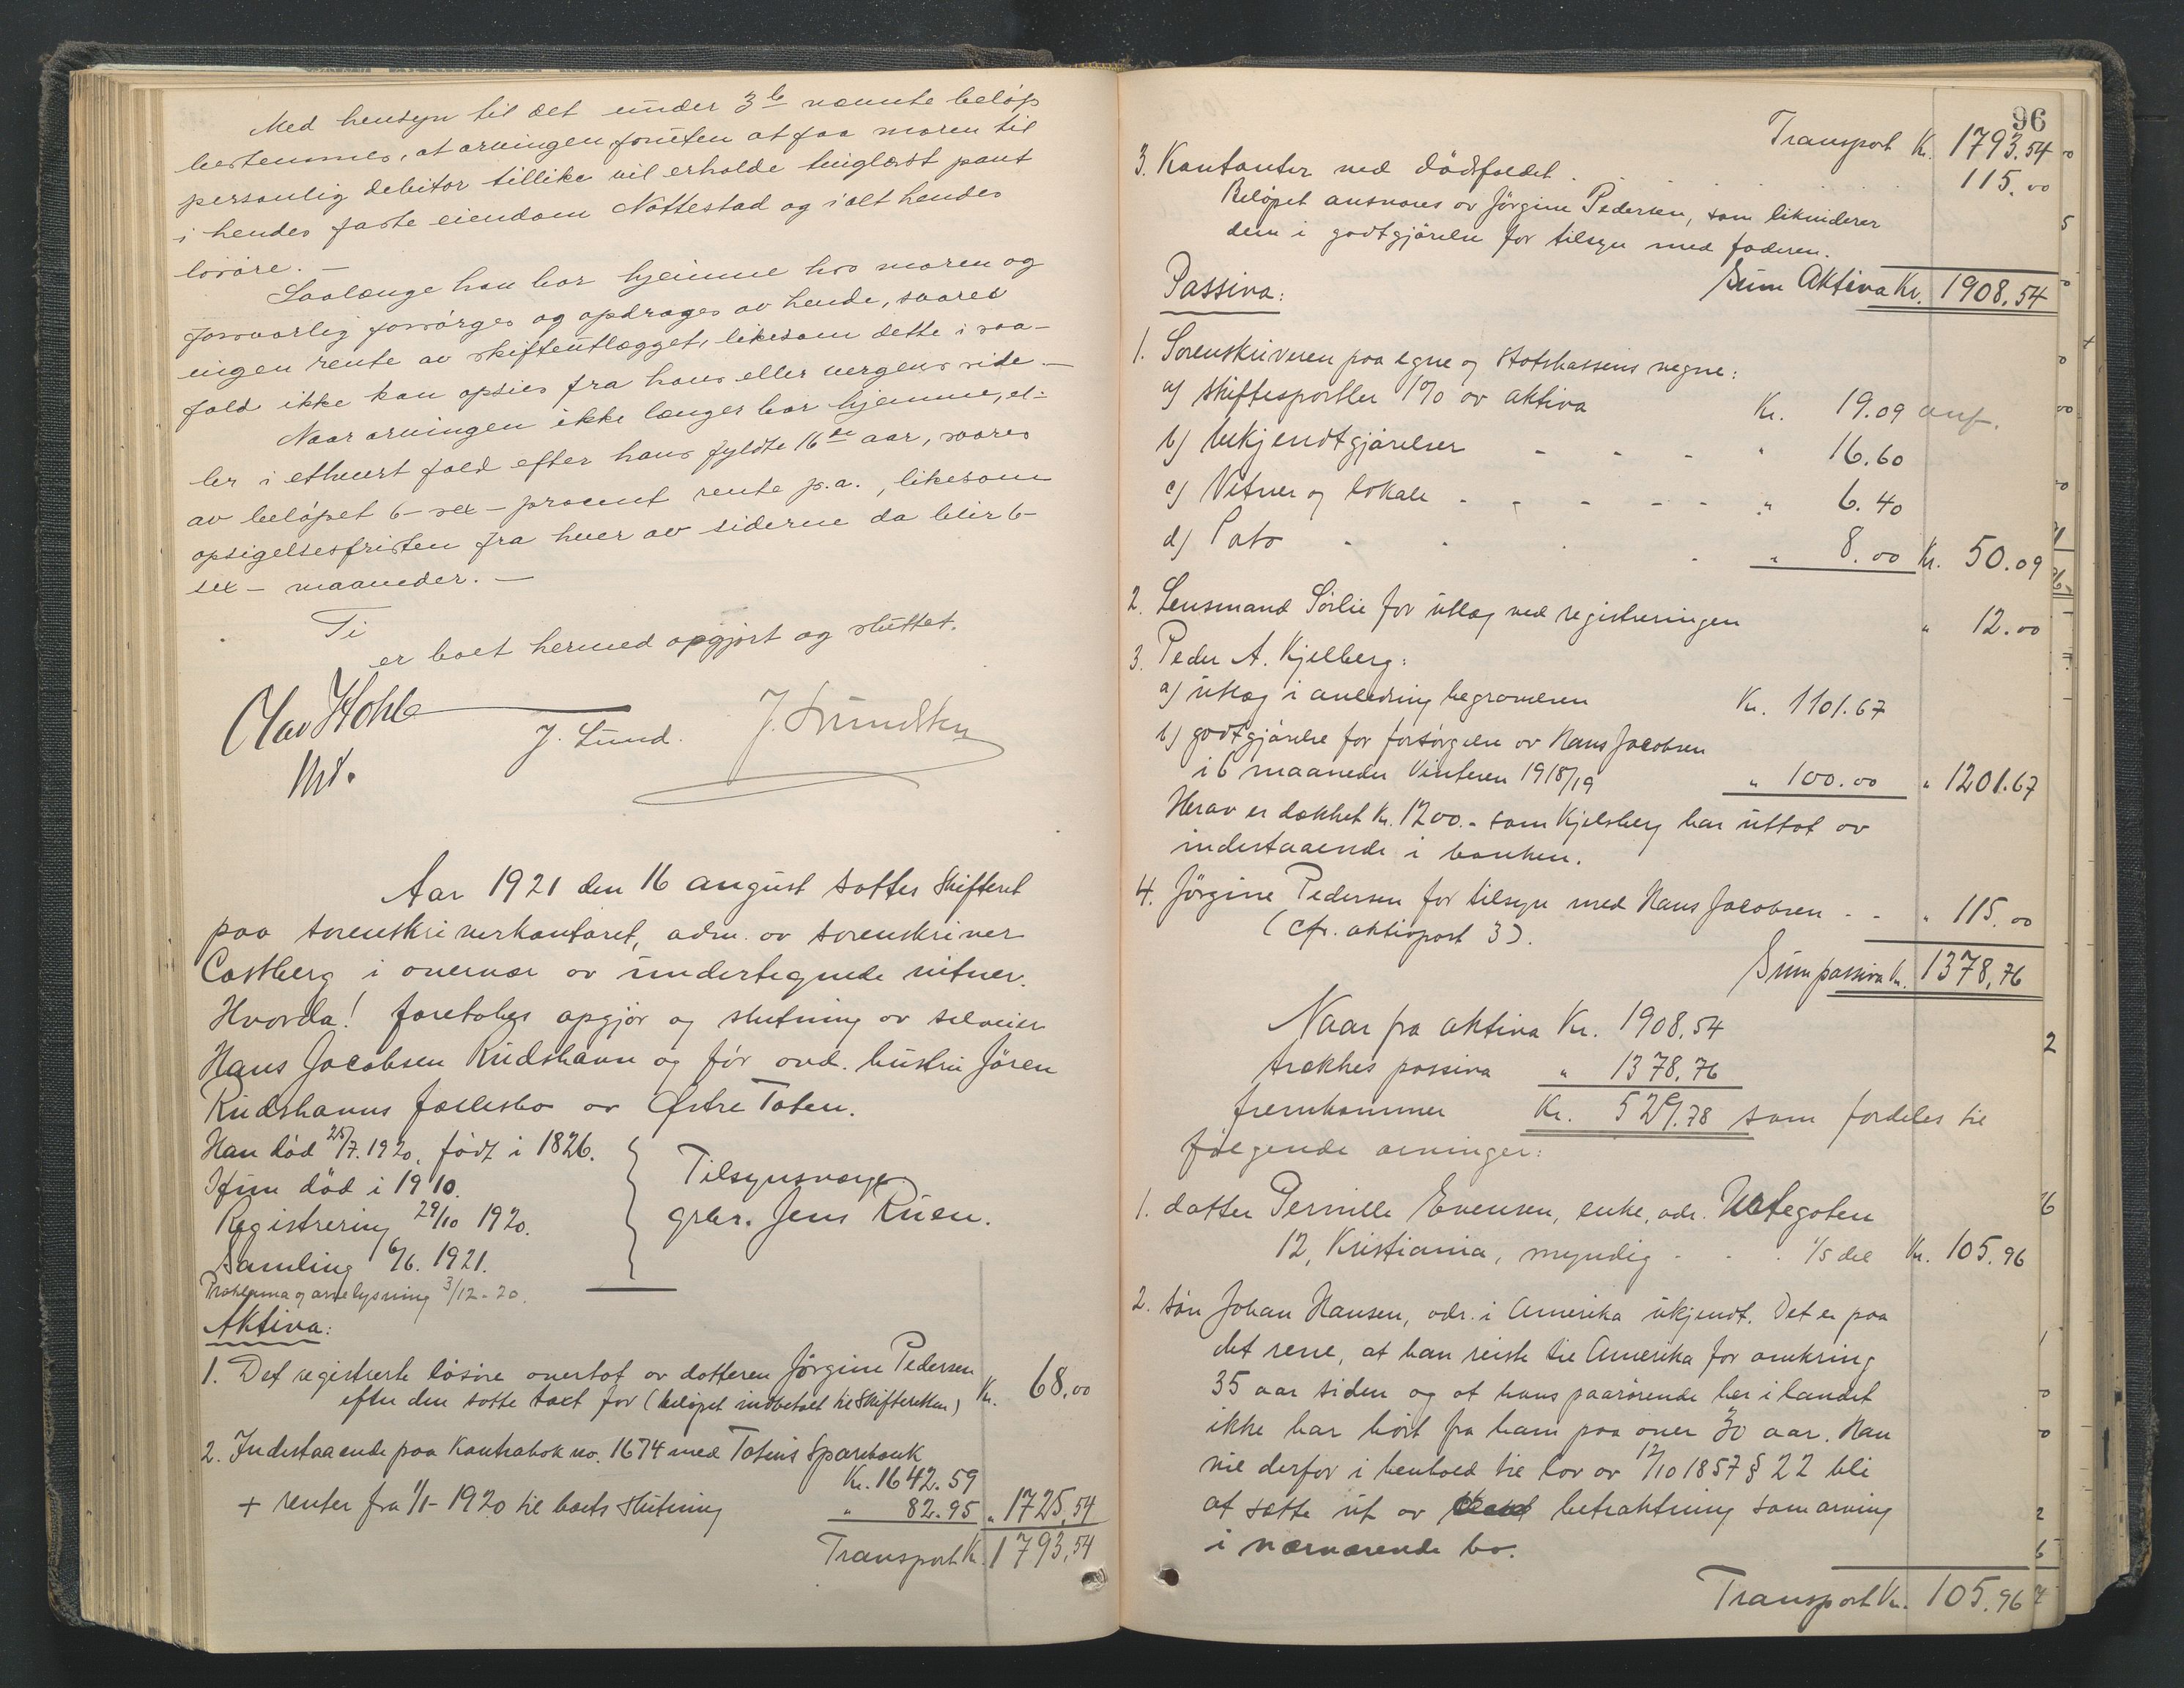 Med hensyn til det under 3 b nævnte beløp
bestemmes, at arvingen, foruten at faa moren til
personlig debitor tillike vil erholde tinglæst pant
i hendes faste eiendom Nøttestad og i alt hendes
løsøre. —
Saalænge han bor hjemme hos moren og
forsvarlig forsørges og opdrages av hende, svares
ingen rente av skifteutlægget, likesom dette i saa-
fald ikke kan opsies fra hans eller vergens side. —
Naar arvingen ikke længer bor hjemme, el-
ler i ethvert fald efter hans fyldte 16de aar, svares
av beløpet 6 - sex - procent rente p.a., likesom
opsigelsesfristen fra hver av siderne da blir 6-
sex - maaneder. —
Ti
er boet hermed opgjort og sluttet.
Olav Hohle
J. Lund.
J. Sundsten
Aar 1921 den 16 august sattes skifteret
paa sorenskriverkontoret, adm. av sorenskriver
Castberg i overvær av undertegnede vitner.
Hvorda! foretokes opgjør og slutning av selveier
Hans Jacobsen Rudshavn og før avd. hustru Jören
Rudshavns fællesbo av Østre Toten.
Han død 25/7. 1920, født i 1826.
Hun död i 1910.
Registrering 29/10 1920.
Samling 6/6. 1921.
Proklama og arvelysning 3/12-20.
Tilsynsværge
grbr. Jens Ruen.
Aktiva:
1. Det registrerte løsøre overtat av datteren Jörgine Pedersen
efter den satte taxt for (beløpet indbetalt til Skifteretten) Kr. 68,00
2. Indestaaende paa Kontrabok no. 1674 med Totens Sparebank
Kr. 1642.59
+ renter fra 1/1-1920 til boets slutning " 82.95 " 1725,54
Transport Kr. 1793,54
96
Transport Kr. 1793.54
3. Kontanter ved dödsfaldet . . . 115.00
Beløpet ansvares av Jörgine Pedersen, som likviderer
dem i godtgjörelse for tilsyn med faderen.
Sum Aktiva Kr. 1908.54
Passiva:
1. Sorenskriveren paa egne og Statskassens vegne:
a) skiftesportler 1% av aktiva Kr. 19.09 anf.
b) bekjendtgjörelser - - - " 16.60
c) Vitner og lokale - - - - - " 6.40
d) Porto - - - " 8.00 Kr. 50.09
2. Lensmand Sörlie for utlæg ved registreringen " 12.00
3. Peder A. Kjelberg:
a) utlæg i anledning begravelsen Kr. 1101.67
b) godtgjörelse for forsörgelse av Hans Jacobsen
i 6 maaneder Vinteren 1918/19 " 100.00 " 1201.67
Herav er dækket Kr. 1200.- som Kjelsberg har uttat av
indestaaende i banken.
4. Jörgine Pedersen for tilsyn med Hans Jacobsen - - " 115.00
(cfr. aktivpost 3).
Sum passiva Kr. 1378,76
Naar fra aktiva Kr. 1908.54
trækkes passiva " 1378.76
fremkommer Kr. 529.78 som fordeles til
følgende arvinger:
1. datter Pernille Evensen, enke, adr.
12, Kristiania, myndig - - - 1/5 del Kr. 105.96
2. sön Johan Hansen, adr. i Amerika ukjendt. Det er paa
det rene, at han reiste til Amerika for omkring
35 aar siden og at hans paarørende her i landet
ikke har hört fra ham paa over 30 aar. Han
vil derfor i henhold til lov av 12/10 1857 § 22 bli
at sætte ut av betraktning som arving
i nærværende bo.
Transport Kr. 105.96